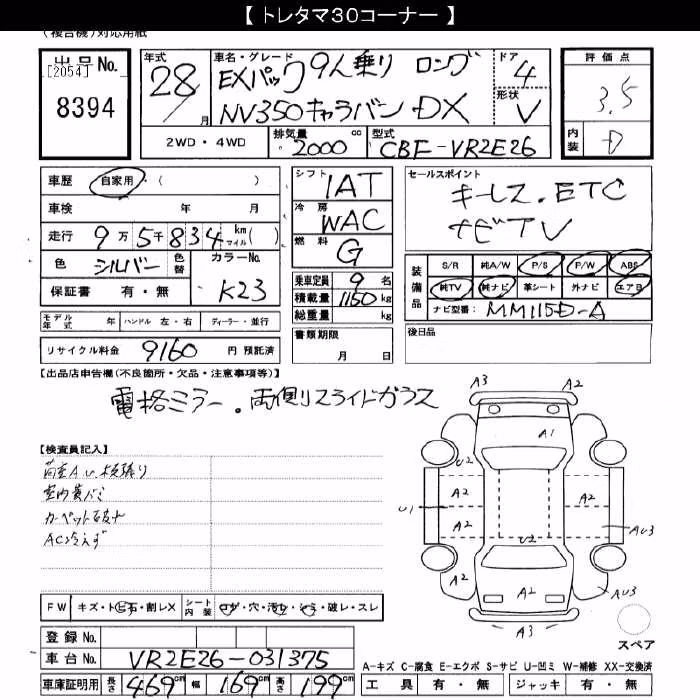 【 トレタマ３０コーナー 】
(複合機)対応用紙
出品No.
[2054]
8394
年式 28 月
車名・グレード
EXパック 9人乗り ロング
NV350キャラバン DX
ドア 4
形状 V
評価点
3.5
内装 D
2WD・4WD
排気量 2000 cc
型式 CBF-VR2E26
車歴 自家用・( )
車検 年 月
走行 9万5千834 km マイル( )
色 シルバー 色替 カラーNo. K23
保証書 有・無
モデル年式 年 ハンドル 左・右 ディーラー・並行
リサイクル料金 9160 円 預託済
シフト IAT
冷房 WAC
燃料 G
乗車定員 9 名
積載量 1150 kg
総重量 kg
書類期限
月 日
セールスポイント
キーレス．ETC
ナビTV
装備品
S/R 純A/W P/S P/W ABS
純TV 純ナビ 革シート 外ナビ エアB
ナビ型番: MM115D-A
後日品
【出品店申告欄(不良箇所・欠品・注意事項等)】
電格ミラー．両側スライドガラス
【検査員記入】
室内
カーペット
AC冷えず
A3 A2
A1
U2
A2 A2
U1
A2
U2
AU3
A2 A2
AU3
A3
スペア
FW キズ・トビ石・割レX
シート内装 コゲ・穴・汚レ・シミ・破レ・スレ
登録No.
車台No. VR2E26-031375
車庫証明用 長さ 469cm 幅 169cm 高さ 199cm
A-キズ C-腐食 E-エクボ S-サビ U-凹ミ W-補修 XX-交換済
工具 有・無 ジャッキ 有・無